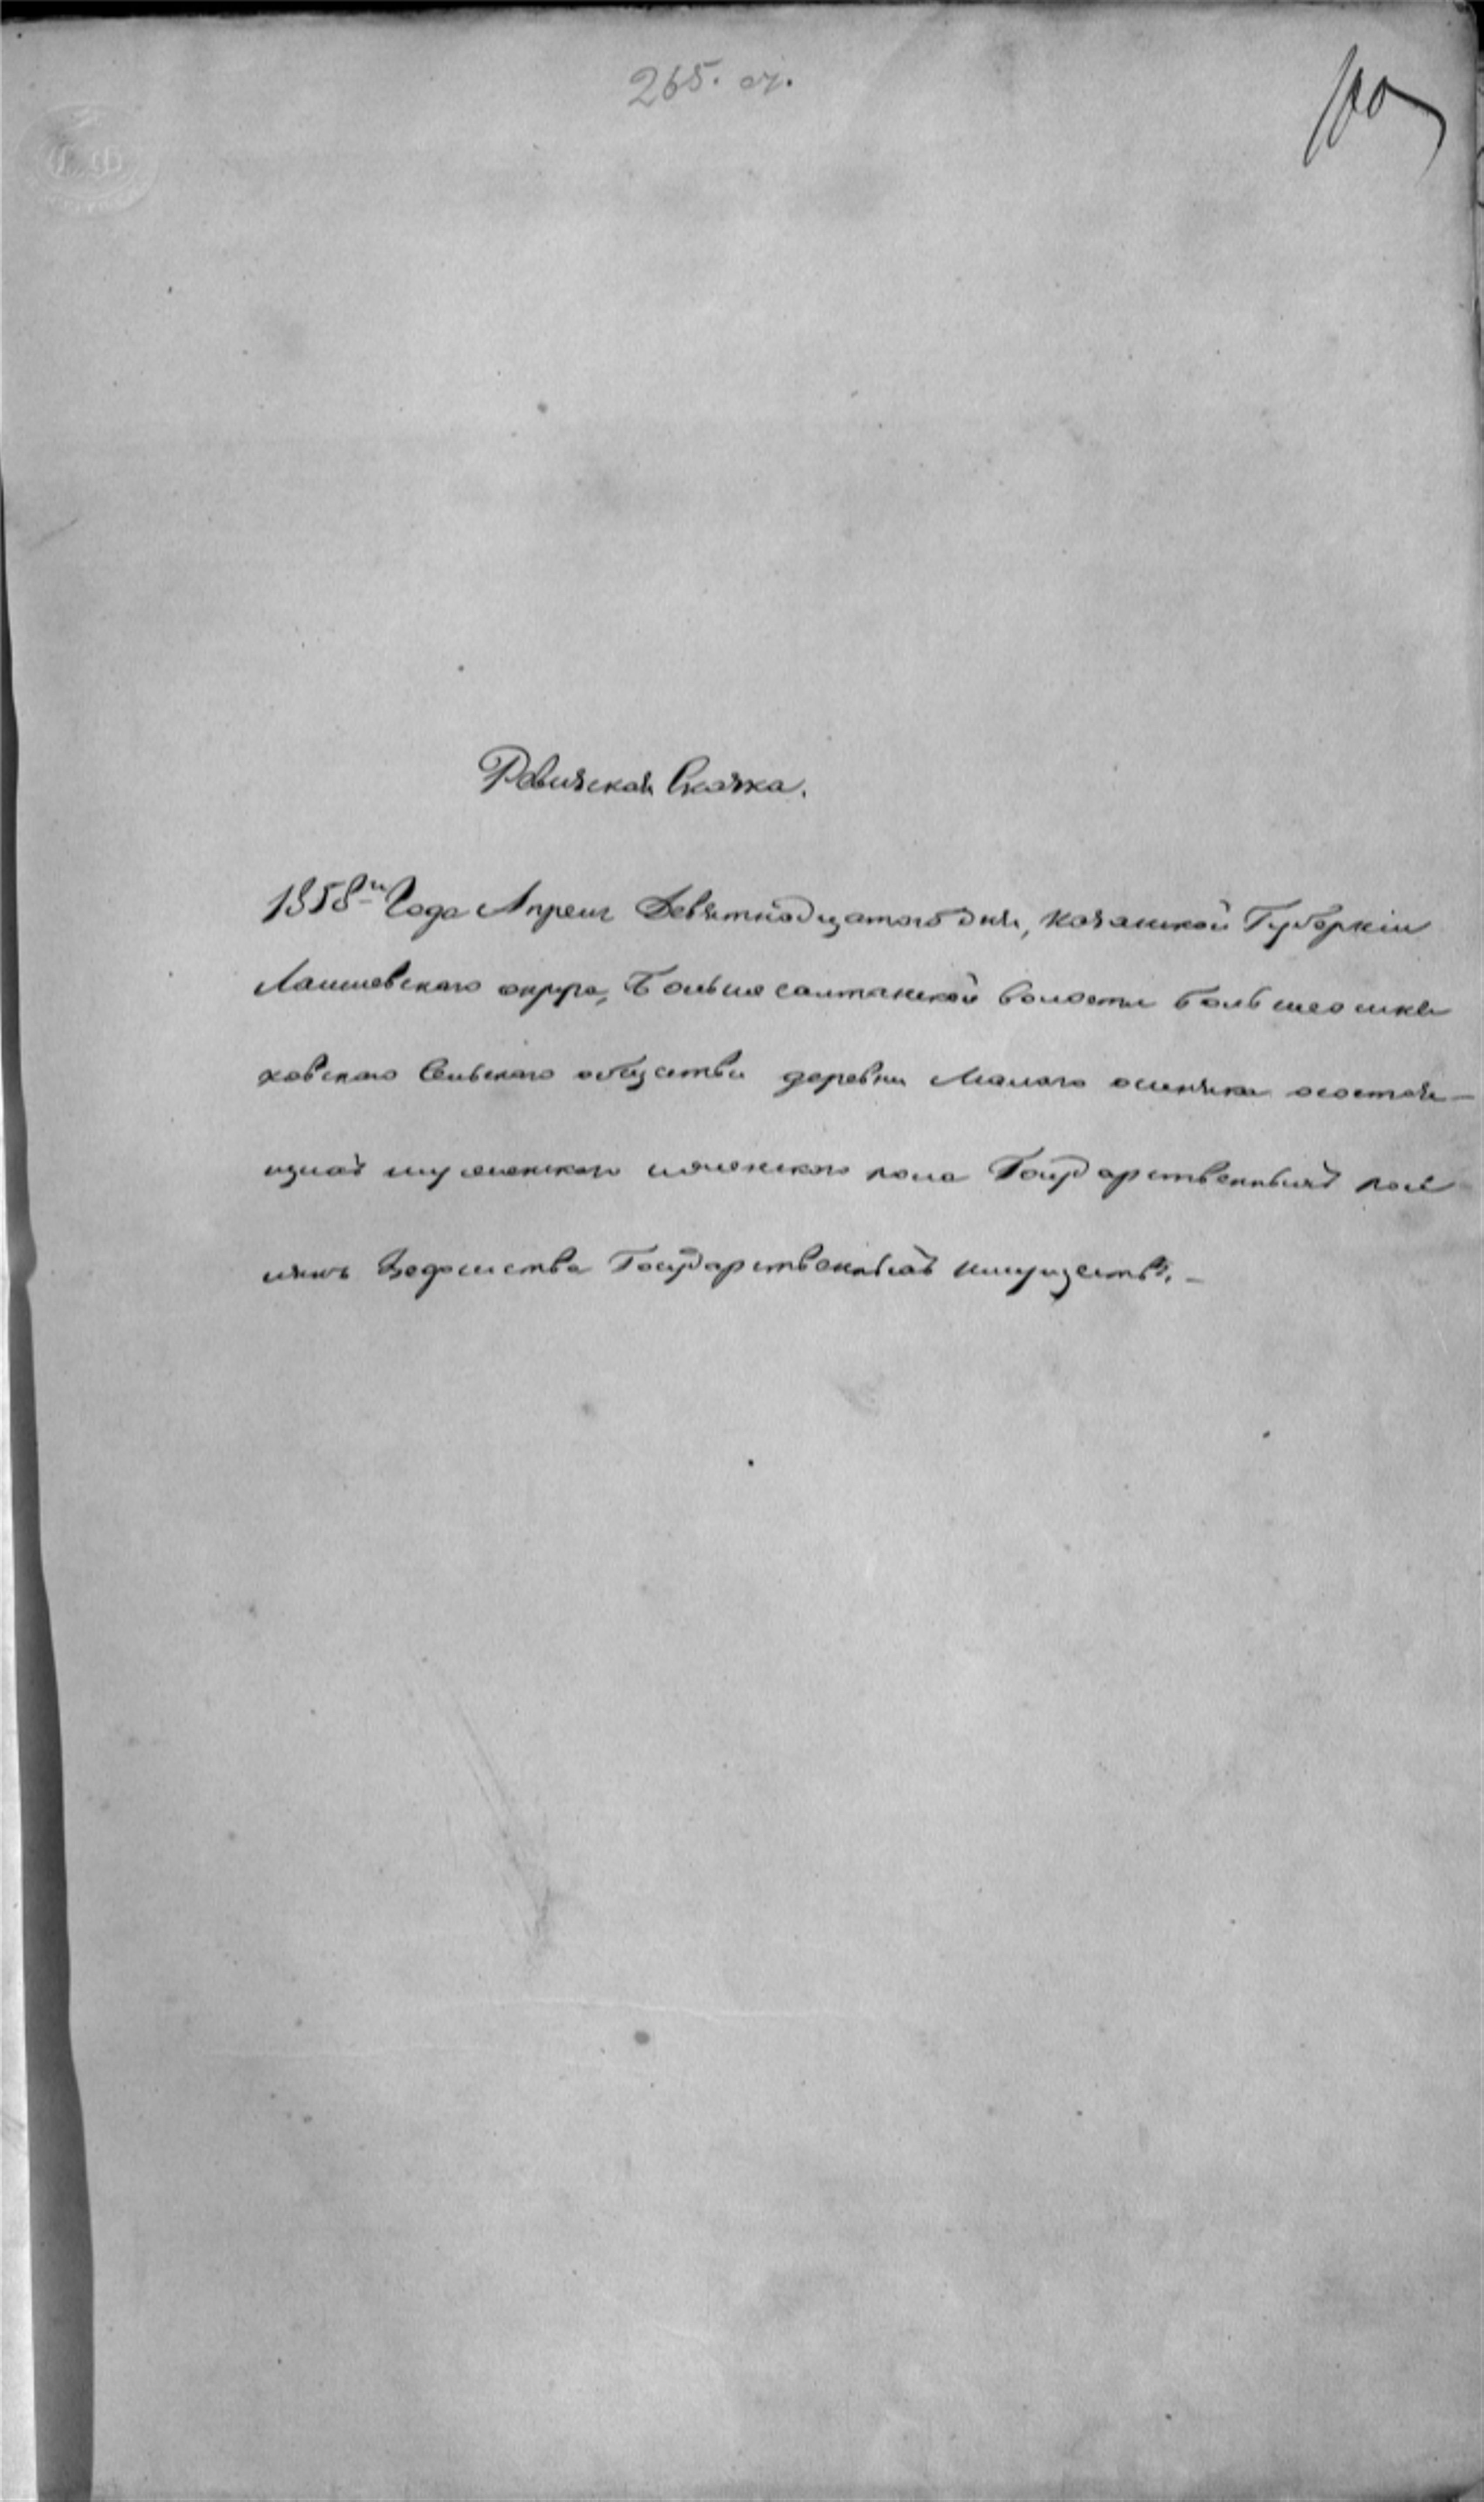 265. оч.
100
Ревизская Сказка.
1858го Года Апреля Девятнадцатого дня, казанской Губернiи
Лаишевскаго округа, Большесалтанской волости большеошня
ковскаго Сельскаго общества деревни Малаго ошняка осостоя–
щихъ мужескаго иженскаго пола Государственныхъ посе
лянъ Ведомства Государственныхъ имуществъ. –